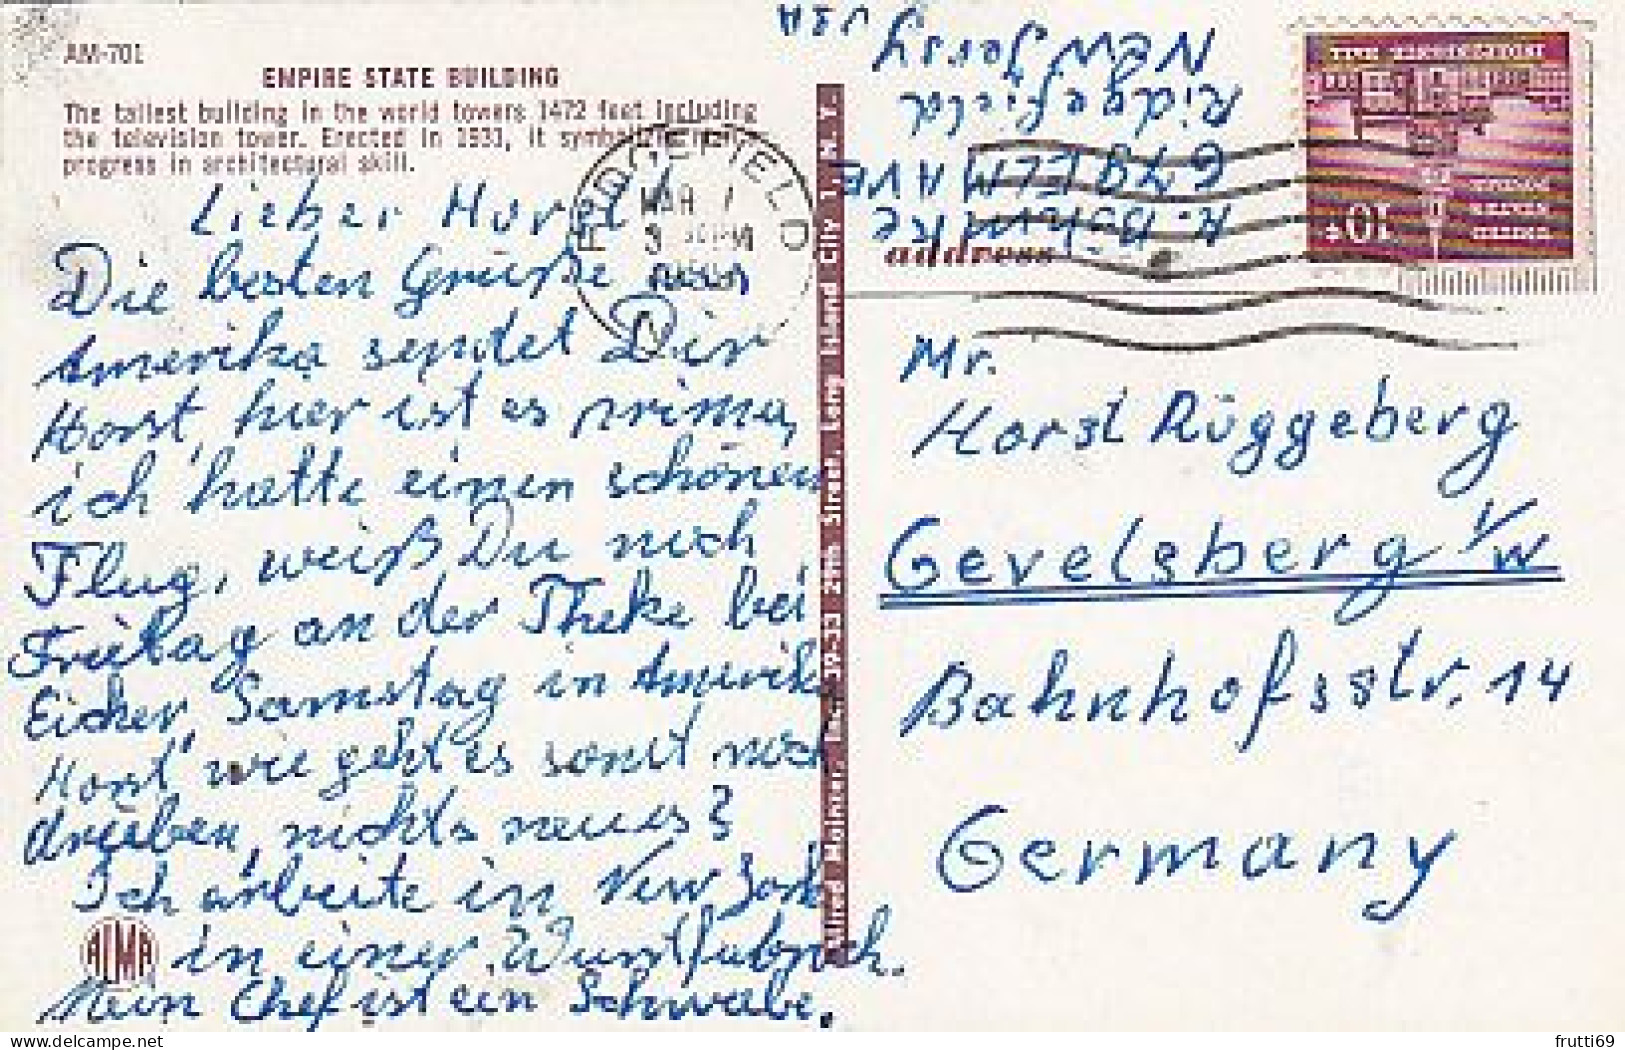 AM-701
EMPIRE STATE BUILDING
The tallest building in the world towers 1472 feet including
the television tower. Erected in 1931, it symbolizes
progress in architectural skill.
Lieber Horst!
Die besten Grüße aus
Amerika sendet Dir
Horst, hier ist es prima,
ich hatte einen schönen
Flug, weißt Du noch
Freitag an der Theke bei
Eicker, Samstag in Amerika
Horst wie geht es sonst noch
drüben, nichts neues?
Ich arbeite in New York
in einer Wurstfabrik.
Mein Chef ist ein Schwabe.
ALMA
Alfred Mainzer, Inc., 39-33 29th Street, Long Island City 1, N. Y.
RIDGEFIELD
MAR 1
3 PM
N
address
679 ELM AVE
Ridgefield
NEW Jersey
USA
UNITED
STATES
POSTAGE
INDEPENDENCE HALL
10¢
Mr.
Horst Rüggeberg
Gevelsberg i/W
Bahnhofsstr. 14
Germany
frutti69